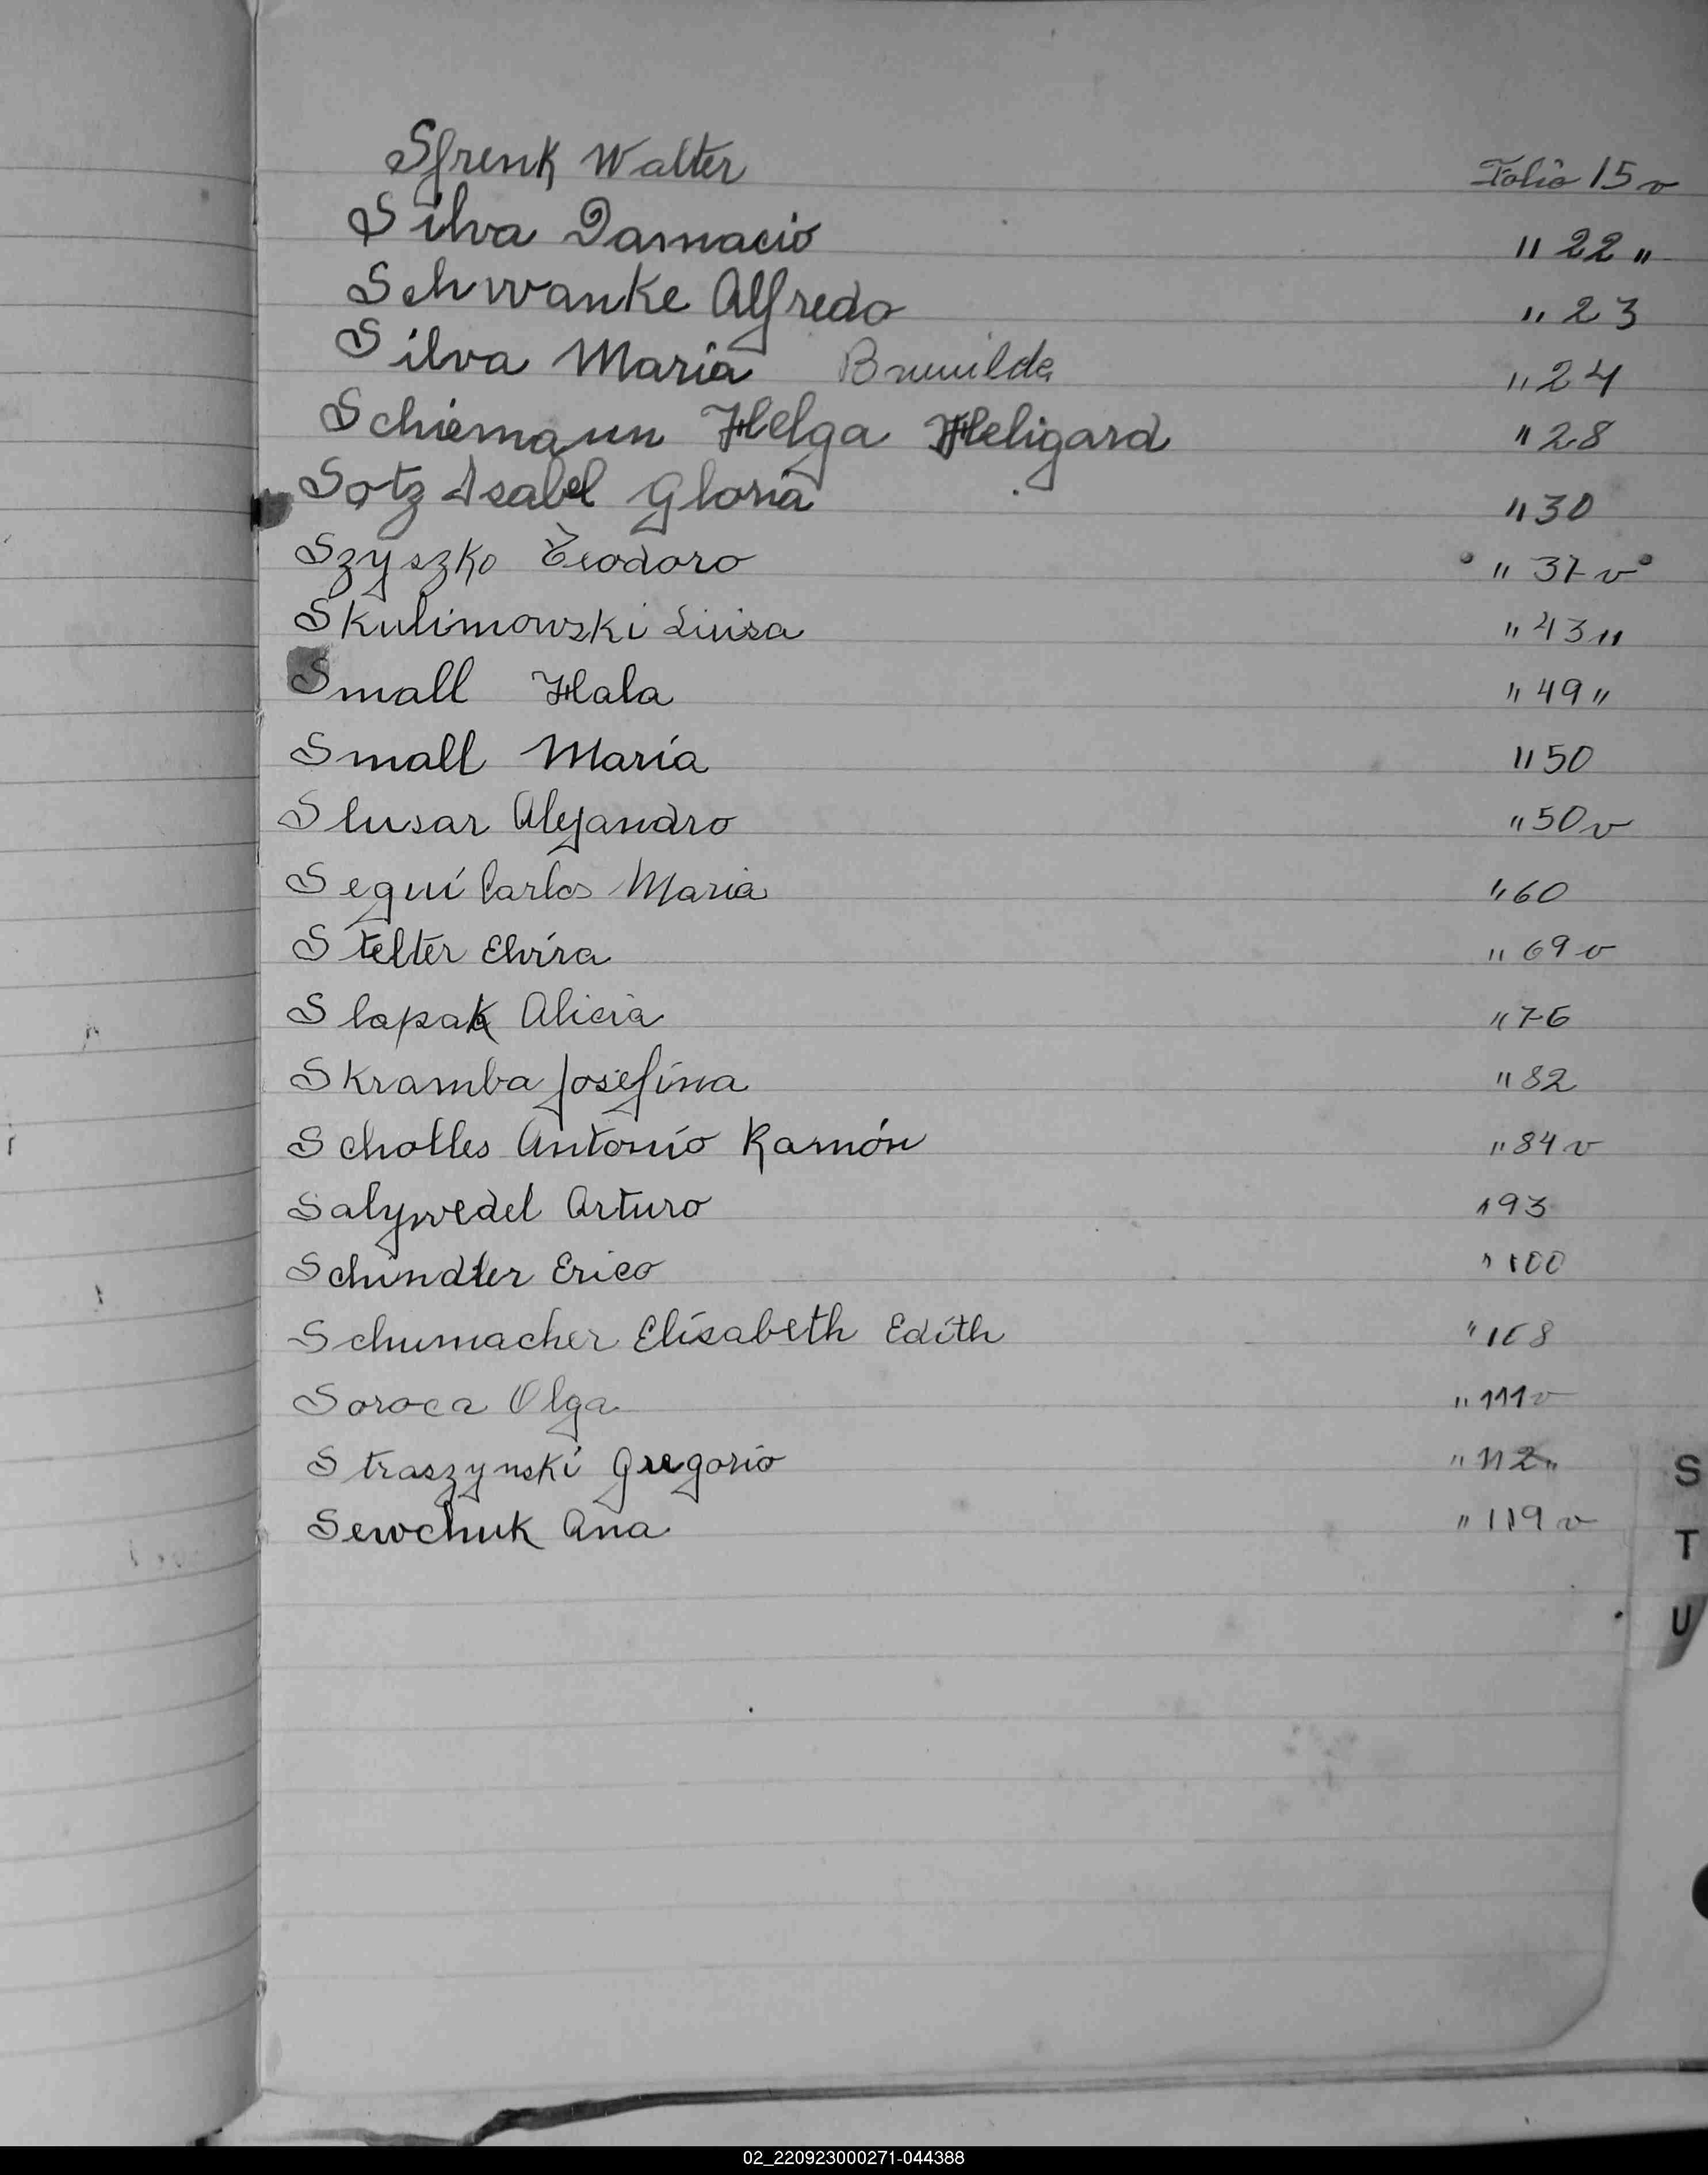 Sfrenk Walter Folio 15 v
Silva Damacio " 22 "
Schwanke Alfredo " 23
Silva Maria Brunilda " 24
Schiemann Helga Heligard " 28
Sotz Isabel Gloria " 30
Szyszko Teodoro " 37 v
Skulimowski Luisa " 43 "
Small Hala " 49 "
Small María " 50
Slusar Alejandro " 50 v
Seguí Carlos Maria " 60
Stelter Elvira " 69 v
Slapak Alicia " 76
Skramba Josefina " 82
Scholles Antonio Ramón " 84 v
Salywedel Arturo " 93
Schindler Erico " 100
Schumacher Elisabeth Edith " 108
Soroca Olga " 111 v
Straszynski Gregorio " 112 "
Sewchuk Ana " 119 v
S
T
U
02_220923000271-044388